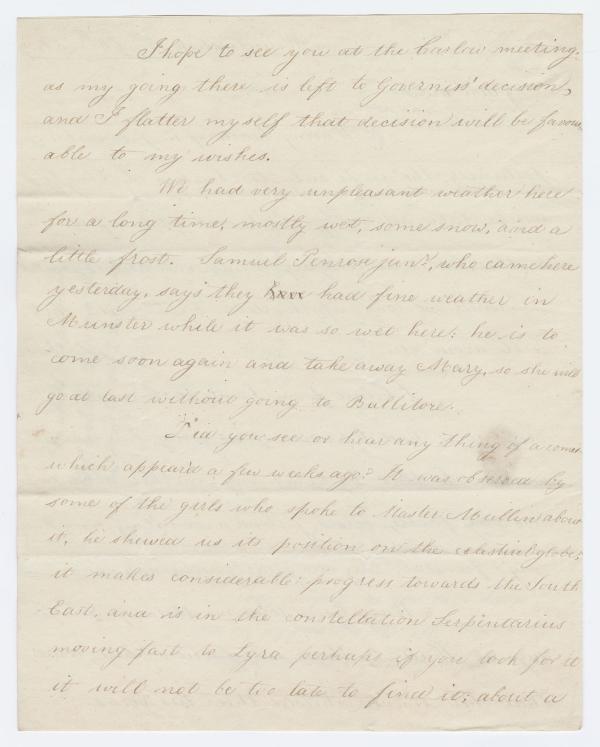 I hope to see you at the Carlow meeting.
as my going there is left to Governess' decision,
and I flatter myself that decision will be favour
able to my wishes.
We had very unpleasant weather here
for a long time, mostly wet, some snow, and a
little frost. Samuel Penrose junr., who came here
yesterday, says they had fine weather in
Munster while it was so wet here: he is to
come soon again and take away Mary, so she will
go at last without going to Ballitore.
Did you see or hear any thing of a comet
which appeard a few weeks ago? It was observed by
some of the girls who spoke to Master Mullin about
it, he shewed us its position on the celestial globe;
it makes considerable progress towards the South
East, and is in the constellation Serpentarius
moving fast to Lyra perhaps if you look for it
it will not be too late to find it; about a